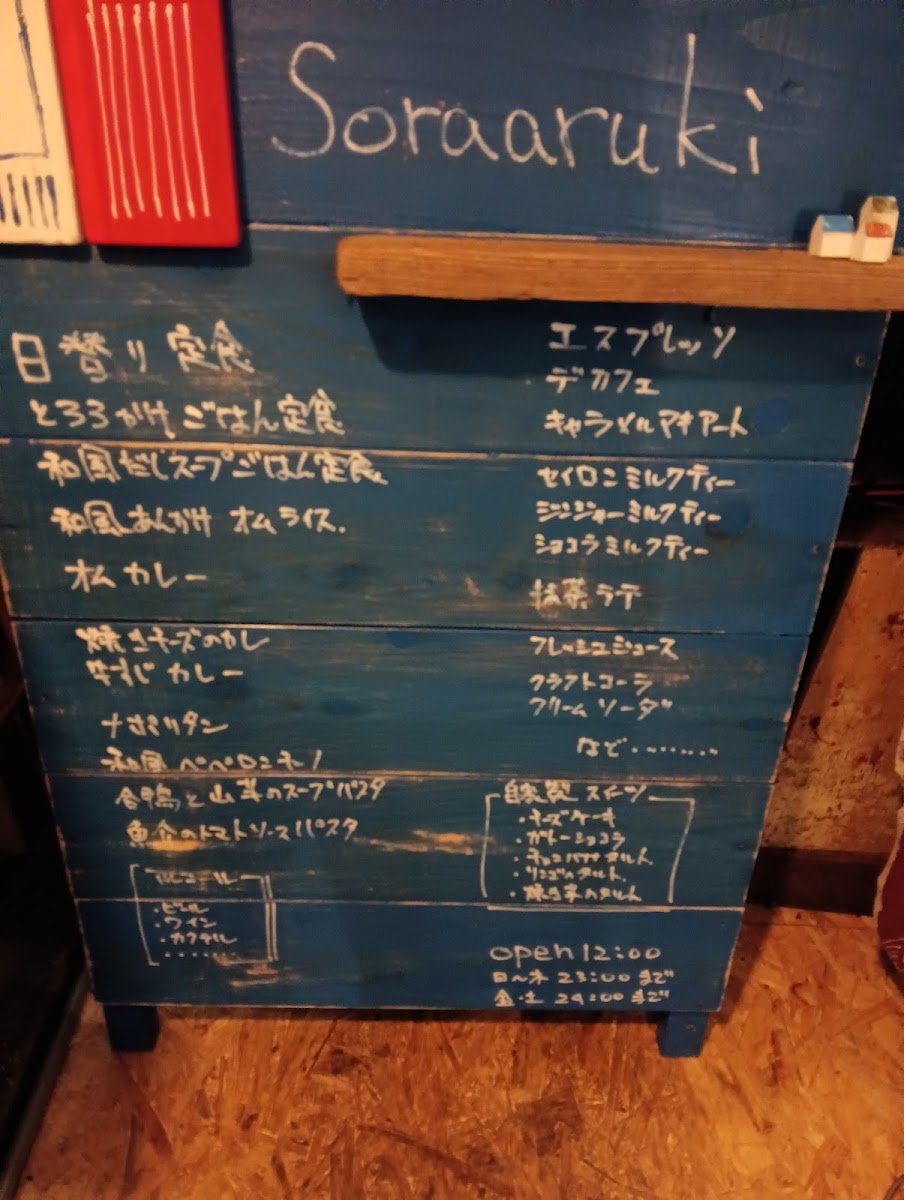 Soraaruki
日替り定食
とろろがけごはん定食
和風だしスープごはん定食
和風あんかけ オムライス.
オムカレー
焼きチーズのカレ
牛すじカレー
ナポリタン
和風 ペペロンチーノ
合鴨と山菜のスープパスタ
魚介のトマトソースパスタ
アルコール
・ビール
・ワイン
・カクテル
........
エスプレッソ
デカフェ
キャラメルマキアート
セイロンミルクティー
ジンジャーミルクティー
ショコラミルクティー
抹茶ラテ
フレッシュジュース
クラフトコーラ
クリームソーダ
など........
自家製スイーツ
・チーズケーキ
・ガトーショコラ
・チョコバナナタルト
・リンゴのタルト
・焼き芋のタルト
open 12:00
日〜木 23:00 まで
金・土 24:00 まで